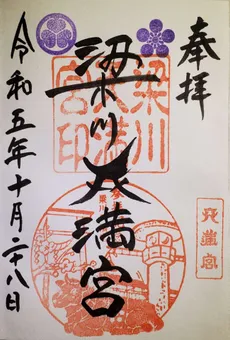 奉拝
梁川天満宮
令和五年十月二十八日
梁川
天満
宮印
天満宮